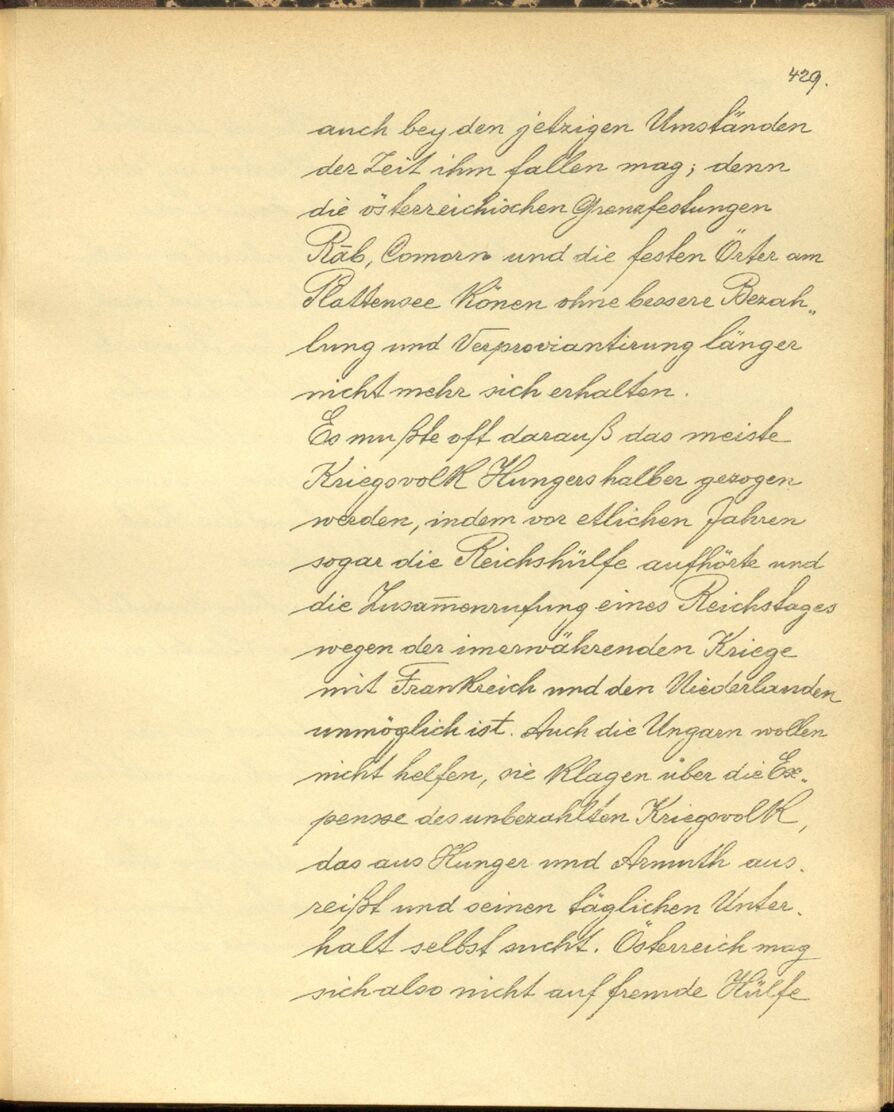 429.
auch bey den jetzigen Umständen
der Zeit ihm fallen mag; denn
die österreichischen Grenzfestungen
Rāb, Comorn und die festen Örter am
Plattensee könen ohne bessere Bezah„
lung und Verproviantirung länger
nicht mehr sich erhalten.
Es mußte oft darauß das meiste
Kriegsvolk Hungers halber gezogen
werden, indem vor etlichen Jahren
sogar die Reichshülfe aufhörte und
die Zusam̅enrufung eines Reichstages
wegen der imerwährenden Kriege
mit Frankreich und den Niederlanden
unmöglich ist. Auch die Ungarn wollen
nicht helfen, sie klagen über die Ex„
pensse des unbezahlten Kriegsvolk,
das aus Hunger und Armuth aus.
reißt und seinen täglichen Unter.
halt selbst sucht. Österreich mag
sich also nicht auf fremde Hülfe